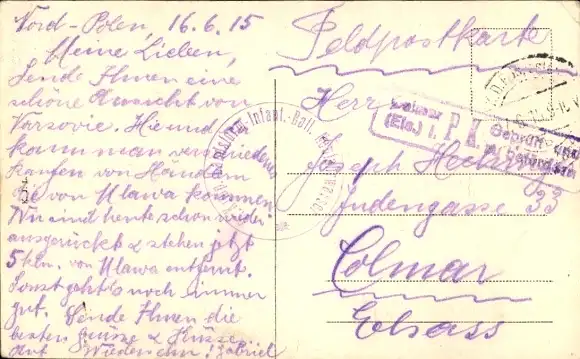 Nord-Polen, 16.6.15
Meine Lieben,
Sende Ihnen eine
schöne Ansicht von
Varsovie. Hie und
kann man verschiedenes
kaufen von Händlern
die von Mlawa kommen
Wir sind heute schon wieder
ausgerückt & stehen jetzt
5 klm. von Mlawa entfernt.
Sonst geht's noch immer
gut. Sende Ihnen die
besten Grüsse & Küsse
Auf Wiedersehn! Gabriel
Feldpostkarte
Herrn
Joseph
Judengasse 33
Colmar
Elsass
Colmar
(Els.) P.K.
Geprüft und
zu befördern
Infant.-Batl.